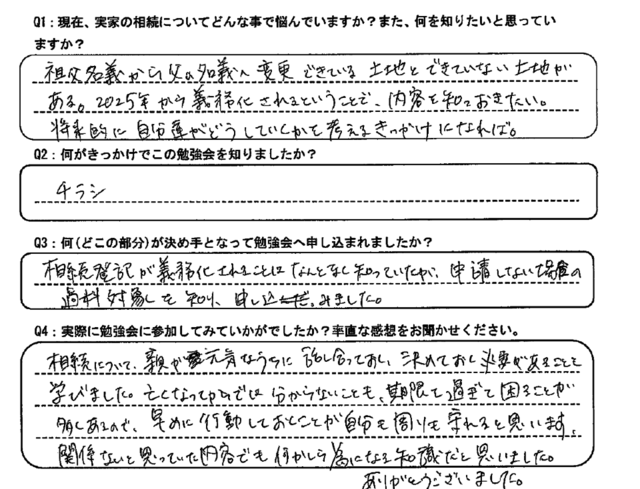 Q1：現在、実家の相続についてどんな事で悩んでいますか？また、何を知りたいと思ってい
ますか？
祖父名義から父の名義へ変更できている土地とできていない土地が
ある。2025年から義務化されるということで、内容を知っておきたい。
将来的に自分達がどうしていくかを考えるきっかけになれば。
Q2：何がきっかけでこの勉強会を知りましたか？
チラシ
Q3：何（どこの部分）が決め手となって勉強会へ申し込まれましたか？
相続登記が義務化されることはなんとなく知っていたが、申請しない場合の
過料対象を知り、申し込みました。
Q4：実際に勉強会に参加してみていかがでしたか？率直な感想をお聞かせください。
相続について、親が元気なうちに話し合っておく、決めておく必要があることを
学びました。亡くなってからでは分からないことも、期限を過ぎて困ることが
多くあるので、早めに行動しておくことが自分も周りも守れると思います。
関係ないと思っていた内容でも何かしら為になる知識だと思いました。
ありがとうございました。